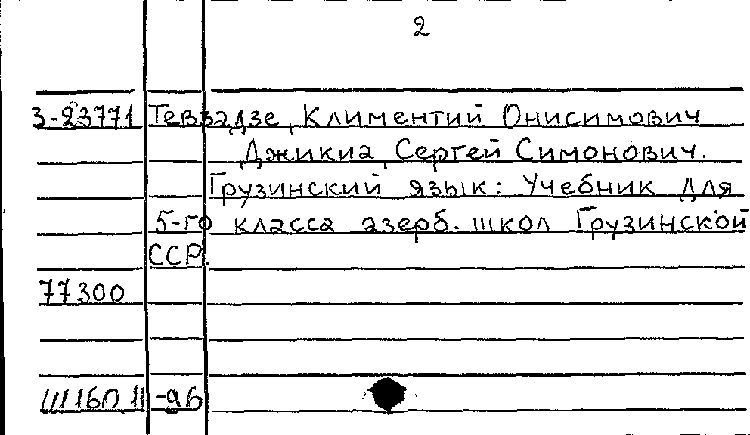 2
3-23771 Тевзадзе, Климентий Онисимович
Джикиа, Сергей Симонович.
Грузинский язык: Учебник для
5-го класса азерб. школ Грузинской
ССР.
77300